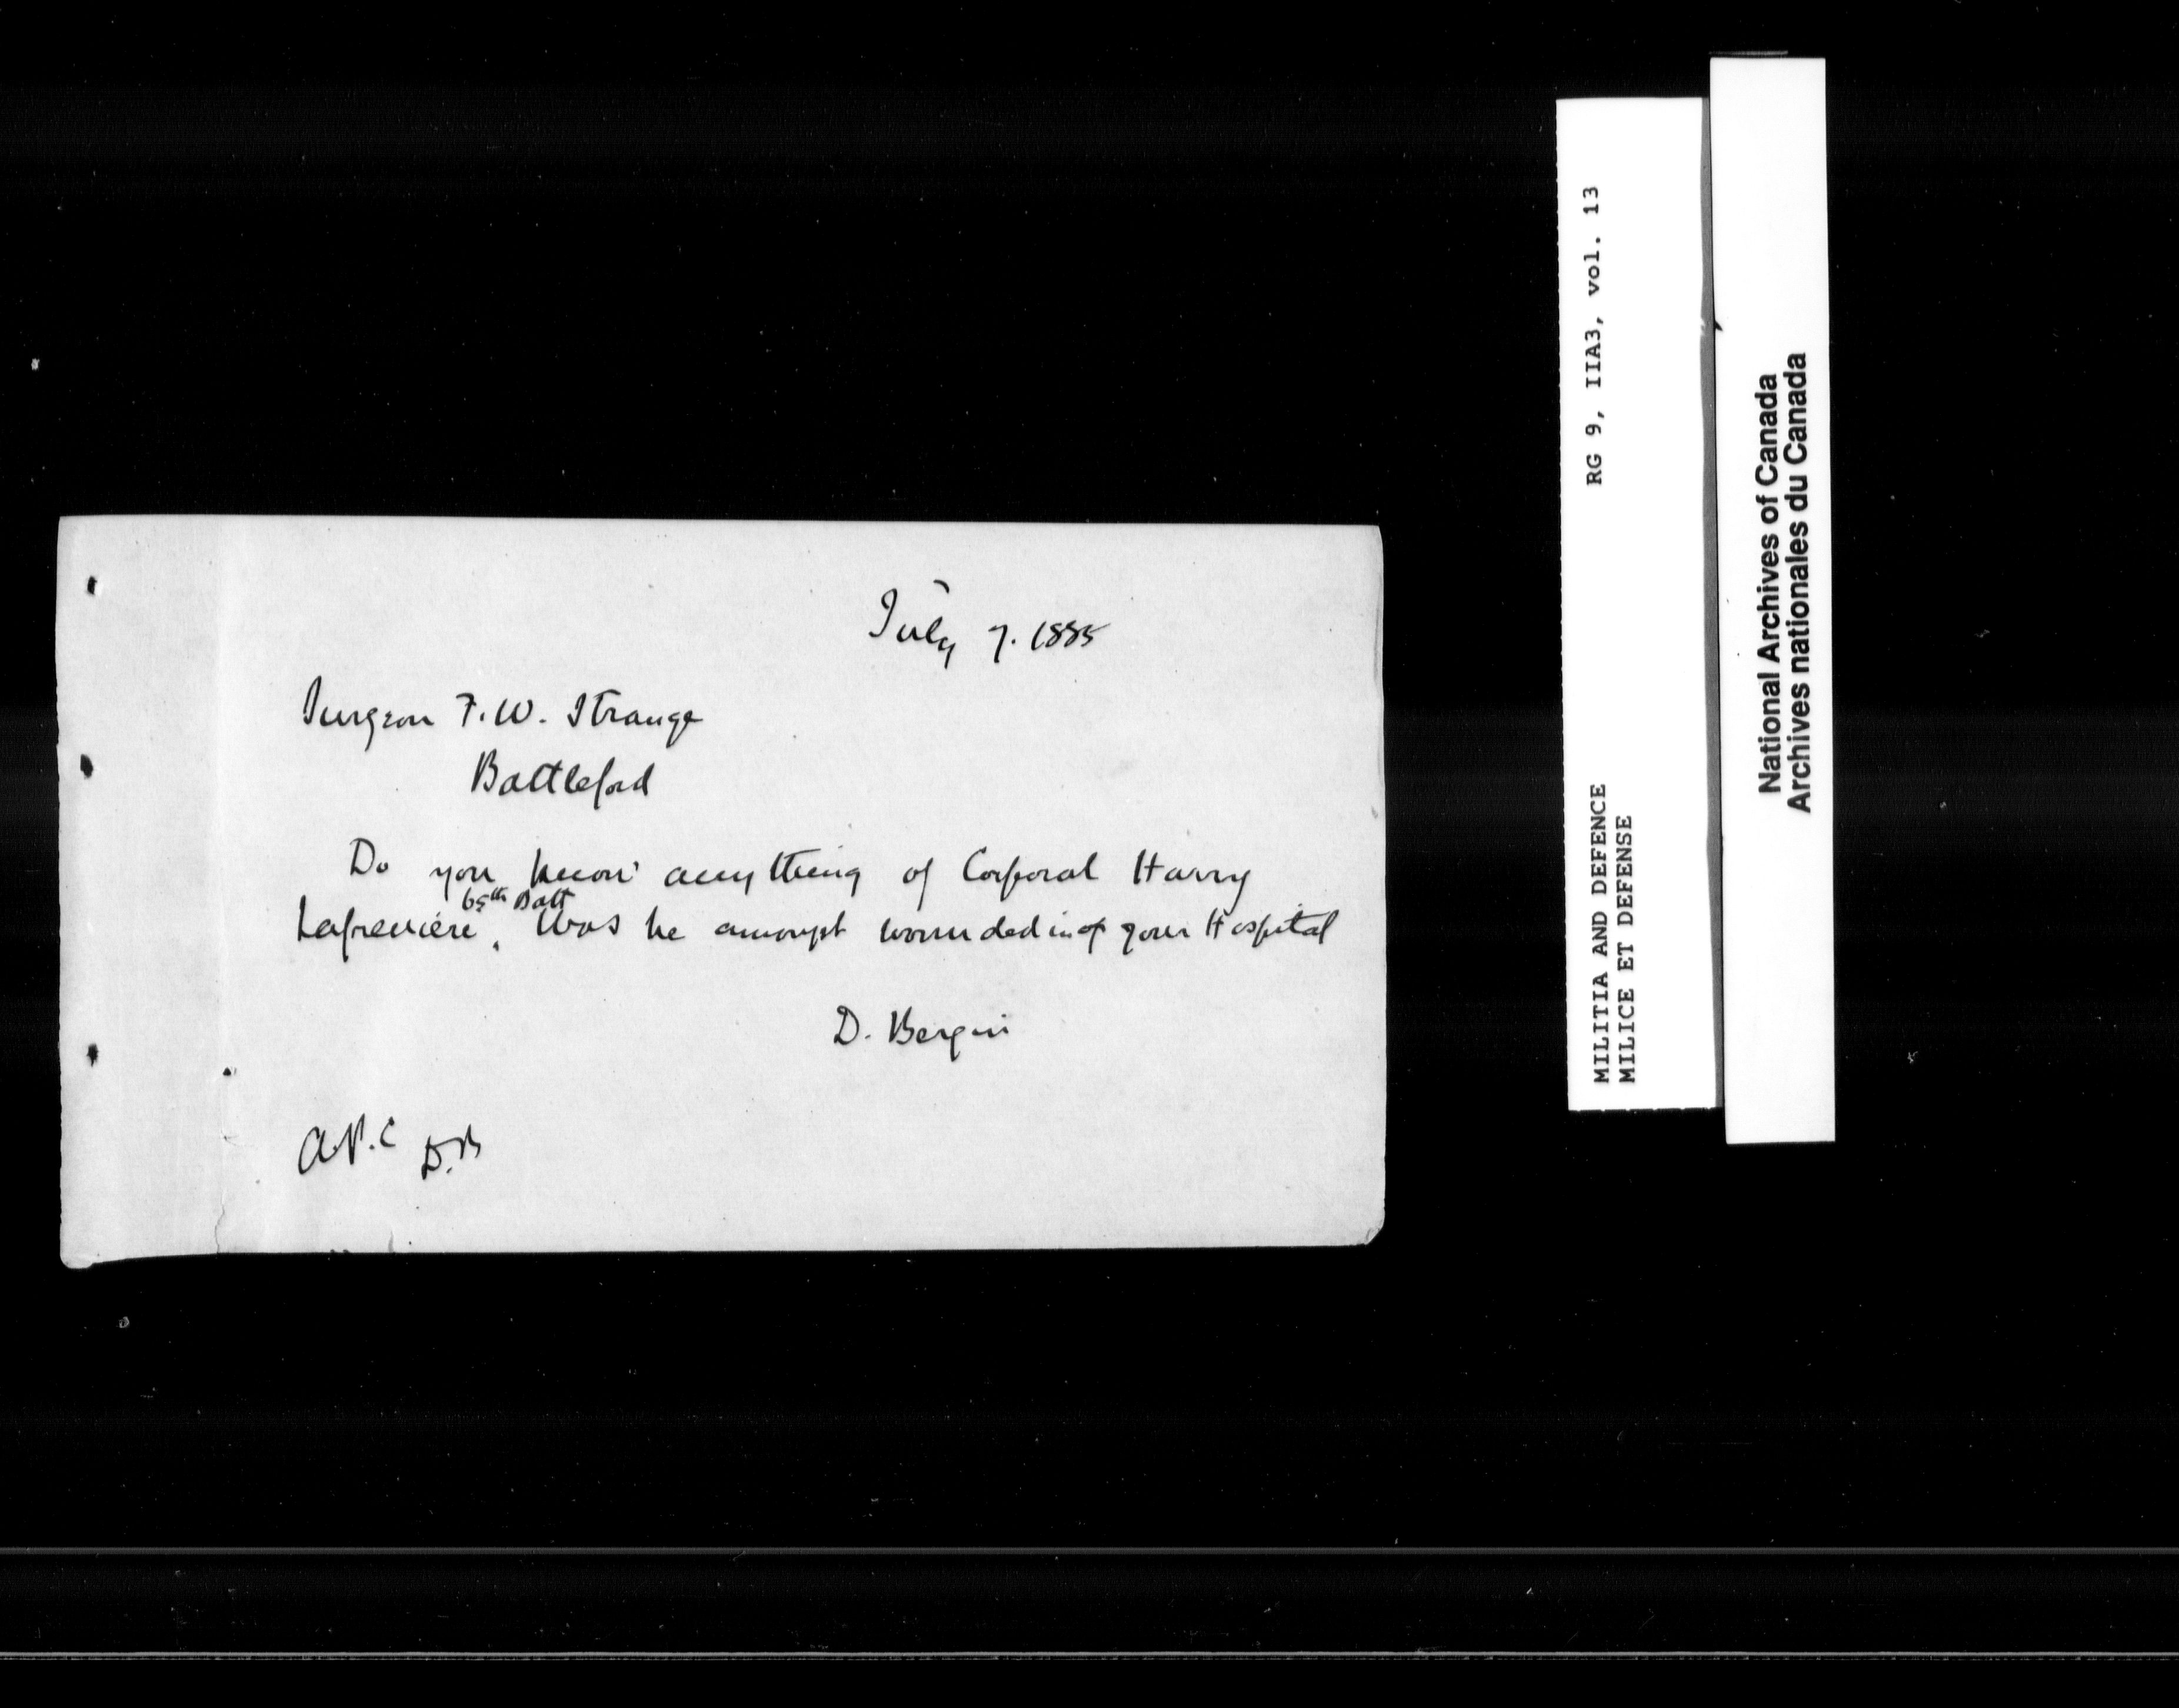 July 7. 1885
Surgeon F.W. Strange
Battleford
Do you know anything of Corporal Harry
65th Batt
Lafreniére. Was he amongst wounded in of your Hospital
D. Bergin
D.B
RG 9, IIA3, vol. 13
MILITIA AND DEFENCE
MILICE ET DEFENSE
National Archives of Canada
Archives nationales du Canada